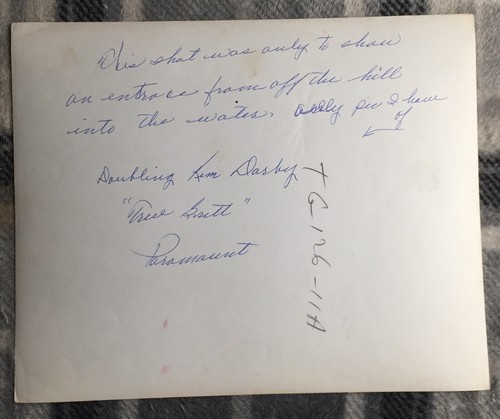 This shot was only to show
an entrace from off the hill
into the water. only pic I have
of
Doubling Kim Darby
"True Gritt"
Paramount
TG-126-11A